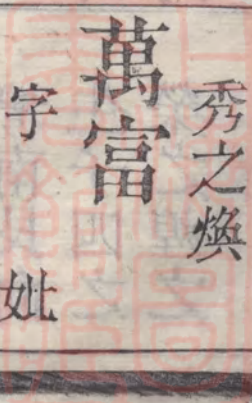 秀之煥
萬富
字 妣